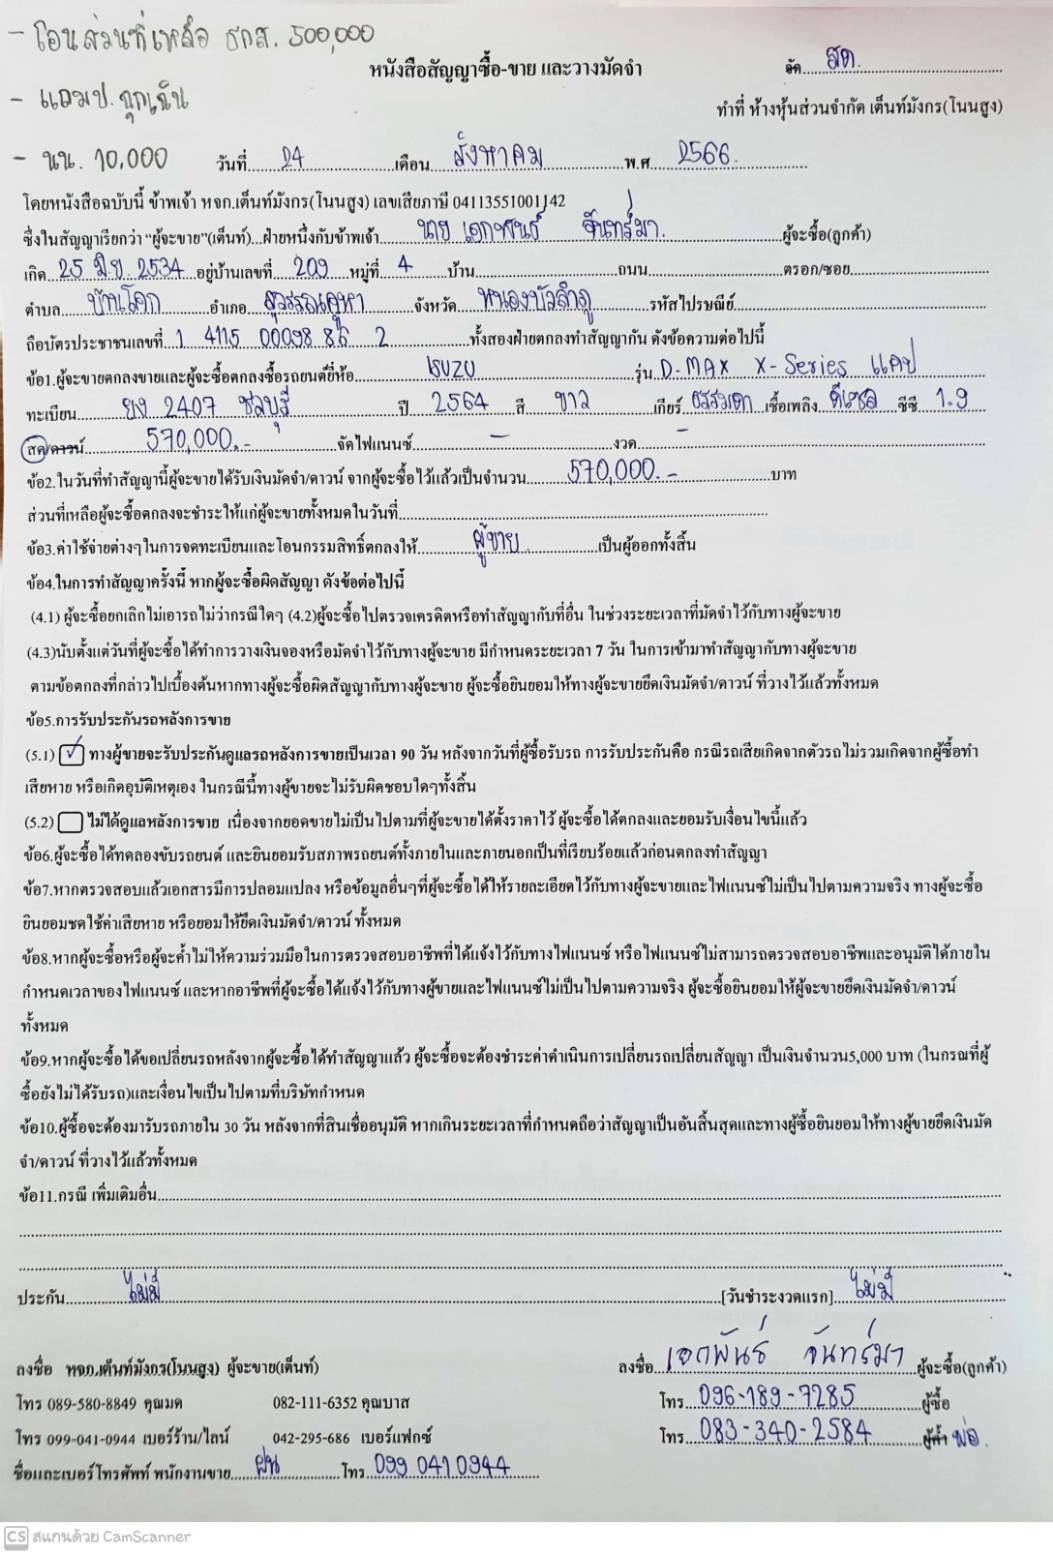 - โอนส่วนที่เหลือ ธกส. 500,000
หนังสือสัญญาซื้อ-ขาย และวางมัดจำ
จัด สด.
- แถมป. ฉุกเฉิน
ทำที่ ห้างหุ้นส่วนจำกัด เต็นท์มังกร(โนนสูง)
- นน. 10,000
วันที่ 24 เดือน สิงหาคม พ.ศ 2566.
โดยหนังสือฉบับนี้ ข้าพเจ้า หจก.เต็นท์มังกร(โนนสูง) เลขเสียภาษี 04113551001142
ซึ่งในสัญญาเรียกว่า “ผู้จะขาย”(เต็นท์)...ฝ่ายหนึ่งกับข้าพเจ้า นาย เอกพันธ์ จันทร์มา. ผู้จะซื้อ(ลูกค้า)
เกิด 25 มิ.ย. 2534 อยู่บ้านเลขที่ 209 หมู่ที่ 4 บ้าน ถนน ตรอก/ซอย
ตำบล บ้านโคก อำเภอ สุวรรณคูหา จังหวัด หนองบัวลำภู รหัสไปรษณีย์
ถือบัตรประชาชนเลขที่ 1 4115 00098 86 2 ทั้งสองฝ่ายตกลงทำสัญญากัน ดังข้อความต่อไปนี้
ข้อ1.ผู้จะขายตกลงขายและผู้จะซื้อตกลงซื้อรถยนต์ยี่ห้อ ISUZU รุ่น D-MAX X-Series แคป
ทะเบียน ยง 2407 ชลบุรี ปี 2564 สี ขาว เกียร์ ธรรมดา เชื้อเพลิง ดีเซล ซีซี 1.9
สด/ดาวน์ 570,000.- จัดไฟแนนซ์ - งวด -
ข้อ2.ในวันที่ทำสัญญานี้ผู้จะขายได้รับเงินมัดจำ/ดาวน์ จากผู้จะซื้อไว้แล้วเป็นจำนวน 570,000.- บาท
ส่วนที่เหลือผู้จะซื้อตกลงจะชำระให้แก่ผู้จะขายทั้งหมดในวันที่
ข้อ3.ค่าใช้จ่ายต่างๆในการจดทะเบียนและโอนกรรมสิทธิ์ตกลงให้ ผู้ขาย เป็นผู้ออกทั้งสิ้น
ข้อ4.ในการทำสัญญาครั้งนี้ หากผู้จะซื้อผิดสัญญา ดังข้อต่อไปนี้
(4.1) ผู้จะซื้อยกเลิกไม่เอารถไม่ว่ากรณีใดๆ (4.2)ผู้จะซื้อไปตรวจเครดิตหรือทำสัญญากับที่อื่น ในช่วงระยะเวลาที่มัดจำไว้กับทางผู้จะขาย
(4.3)นับตั้งแต่วันที่ผู้จะซื้อได้ทำการวางเงินจองหรือมัดจำไว้กับทางผู้จะขาย มีกำหนดระยะเวลา 7 วัน ในการเข้ามาทำสัญญากับทางผู้จะขาย
ตามข้อตกลงที่กล่าวไปเบื้องต้นหากทางผู้จะซื้อผิดสัญญากับทางผู้จะขาย ผู้จะซื้อยินยอมให้ทางผู้จะขายยึดเงินมัดจำ/ดาวน์ ที่วางไว้แล้วทั้งหมด
ข้อ5.การรับประกันรถหลังการขาย
(5.1) ✓ ทางผู้ขายจะรับประกันดูแลรถหลังการขายเป็นเวลา 90 วัน หลังจากวันที่ผู้ซื้อรับรถ การรับประกันคือ กรณีรถเสียเกิดจากตัวรถไม่รวมเกิดจากผู้ซื้อทำ
เสียหาย หรือเกิดอุบัติเหตุเอง ในกรณีนี้ทางผู้ขายจะไม่รับผิดชอบใดๆทั้งสิ้น
(5.2) ไม่ได้ดูแลหลังการขาย เนื่องจากยอดขายไม่เป็นไปตามที่ผู้จะขายได้ตั้งราคาไว้ ผู้จะซื้อได้ตกลงและยอมรับเงื่อนไขนี้แล้ว
ข้อ6.ผู้จะซื้อได้ทดลองขับรถยนต์ และยินยอมรับสภาพรถยนต์ทั้งภายในและภายนอกเป็นที่เรียบร้อยแล้วก่อนตกลงทำสัญญา
ข้อ7.หากตรวจสอบแล้วเอกสารมีการปลอมแปลง หรือข้อมูลอื่นๆที่ผู้จะซื้อได้ให้รายละเอียดไว้กับทางผู้จะขายและไฟแนนซ์ไม่เป็นไปตามความจริง ทางผู้จะซื้อ
ยินยอมชดใช้ค่าเสียหาย หรือยอมให้ยึดเงินมัดจำ/ดาวน์ ทั้งหมด
ข้อ8.หากผู้จะซื้อหรือผู้จะค้ำไม่ให้ความร่วมมือในการตรวจสอบอาชีพที่ได้แจ้งไว้กับทางไฟแนนซ์ หรือไฟแนนซ์ไม่สามารถตรวจสอบอาชีพและอนุมัติได้ภายใน
กำหนดเวลาของไฟแนนซ์ และหากอาชีพที่ผู้จะซื้อได้แจ้งไว้กับทางผู้ขายและไฟแนนซ์ไม่เป็นไปตามความจริง ผู้จะซื้อยินยอมให้ผู้จะขายยึดเงินมัดจำ/ดาวน์
ทั้งหมด
ข้อ9.หากผู้จะซื้อได้ขอเปลี่ยนรถหลังจากผู้จะซื้อได้ทำสัญญาแล้ว ผู้จะซื้อจะต้องชำระค่าดำเนินการเปลี่ยนรถเปลี่ยนสัญญา เป็นเงินจำนวน5,000 บาท (ในกรณที่ผู้
ซื้อยังไม่ได้รับรถ)และเงื่อนไขเป็นไปตามที่บริษัทกำหนด
ข้อ10.ผู้ซื้อจะต้องมารับรถภายใน 30 วัน หลังจากที่สินเชื่ออนุมัติ หากเกินระยะเวลาที่กำหนดถือว่าสัญญาเป็นอันสิ้นสุดและทางผู้ซื้อยินยอมให้ทางผู้ขายยึดเงินมัด
จำ/ดาวน์ ที่วางไว้แล้วทั้งหมด
ข้อ11.กรณี เพิ่มเติมอื่น
ประกัน ไม่มี [วันชำระงวดแรก] ไม่มี
ลงชื่อ หจก.เต็นท์มังกร(โนนสูง) ผู้จะขาย(เต็นท์)
ลงชื่อ เอกพันธ์ จันทร์มา ผู้จะซื้อ(ลูกค้า)
โทร 089-580-8849 คุณมด 082-111-6352 คุณบาส
โทร 096-189-7285 ผู้ซื้อ
โทร 099-041-0944 เบอร์ร้าน/ไลน์ 042-295-686 เบอร์แฟกซ์
โทร 083-340-2584 ผู้ค้ำ พ่อ.
ชื่อและเบอร์โทรศัพท์ พนักงานขาย ฝน โทร 099 041 0944
CS สแกนด้วย CamScanner